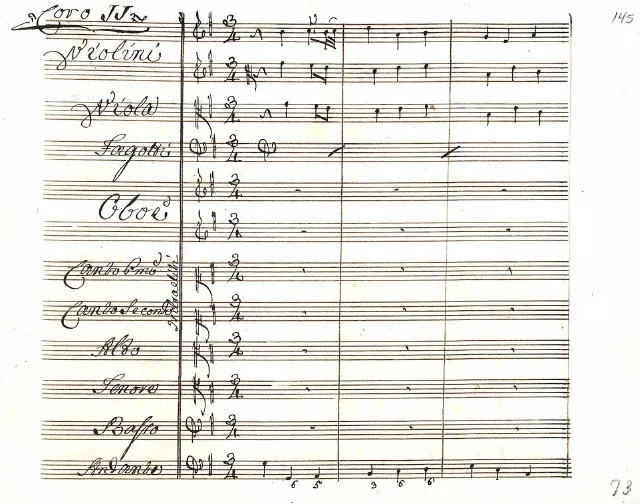 Coro II
145
Violini
Viola
Fagotti
Oboe
Canto Pmo
Canto Secondo
Alto
Tenore
Basso
Andante
3 4
6 5
3 6 6
73